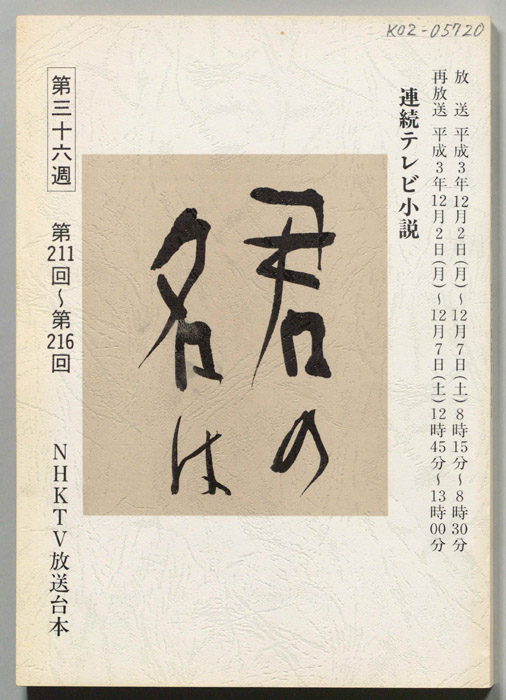 K02-05720
放送 平成3年12月2日(月)～12月7日(土) 8時15分～8時30分
再放送 平成3年12月2日(月)～12月7日(土) 12時45分～13時00分
連続テレビ小説
君の
名は
第三十六週 第211回～第216回 NHKTV放送台本